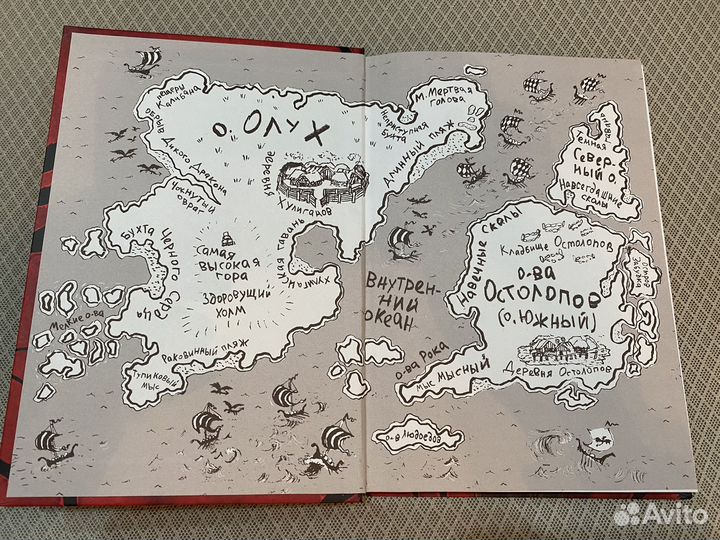 пещеры
Калибана
выгво Дикого Дракона
о. Олух
М. Мертвая
голова
Неприступная
бухта
Длинный пляж
деревня
Хулиганов
Чокнутый
овраг
Бухта Черного Сердца
Самая
высокая
гора
Здоровущий
холм
Хулиганская гавань
Мелкие о-ва
Раковинный пляж
Тупиковый
мыс
Внутрен-
ний
океан
Темная
Север-
ный о.
Навсегдашние
скалы
Навечные скалы
Кладбище Остолопов
о-ва
Остолопов
(о. Южный)
Деревня Остолопов
о-ва Рока
мыс Мысный
о-в людоедов
Avito